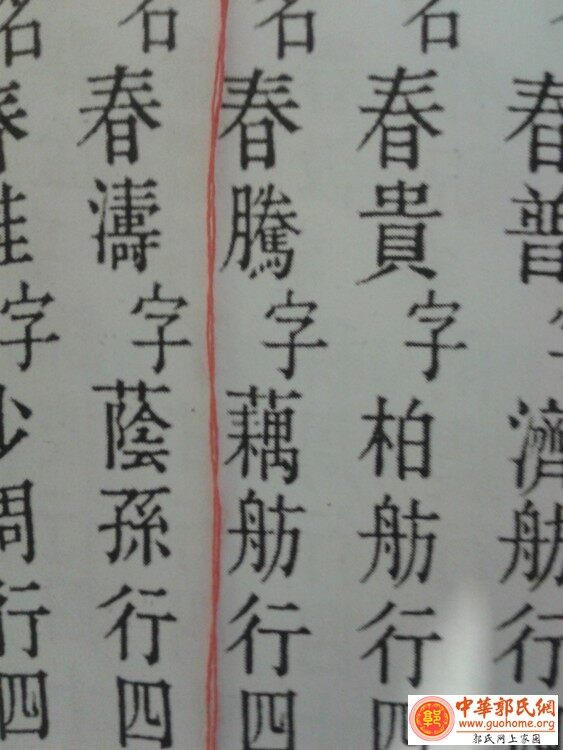 春普字濟舫行
名春貴字柏舫行四
名春騰字藕舫行四
名春濤字蔭孫行四
名春字少行四
郭
中華郭氏網
www.guohome.org
郭氏网上家园